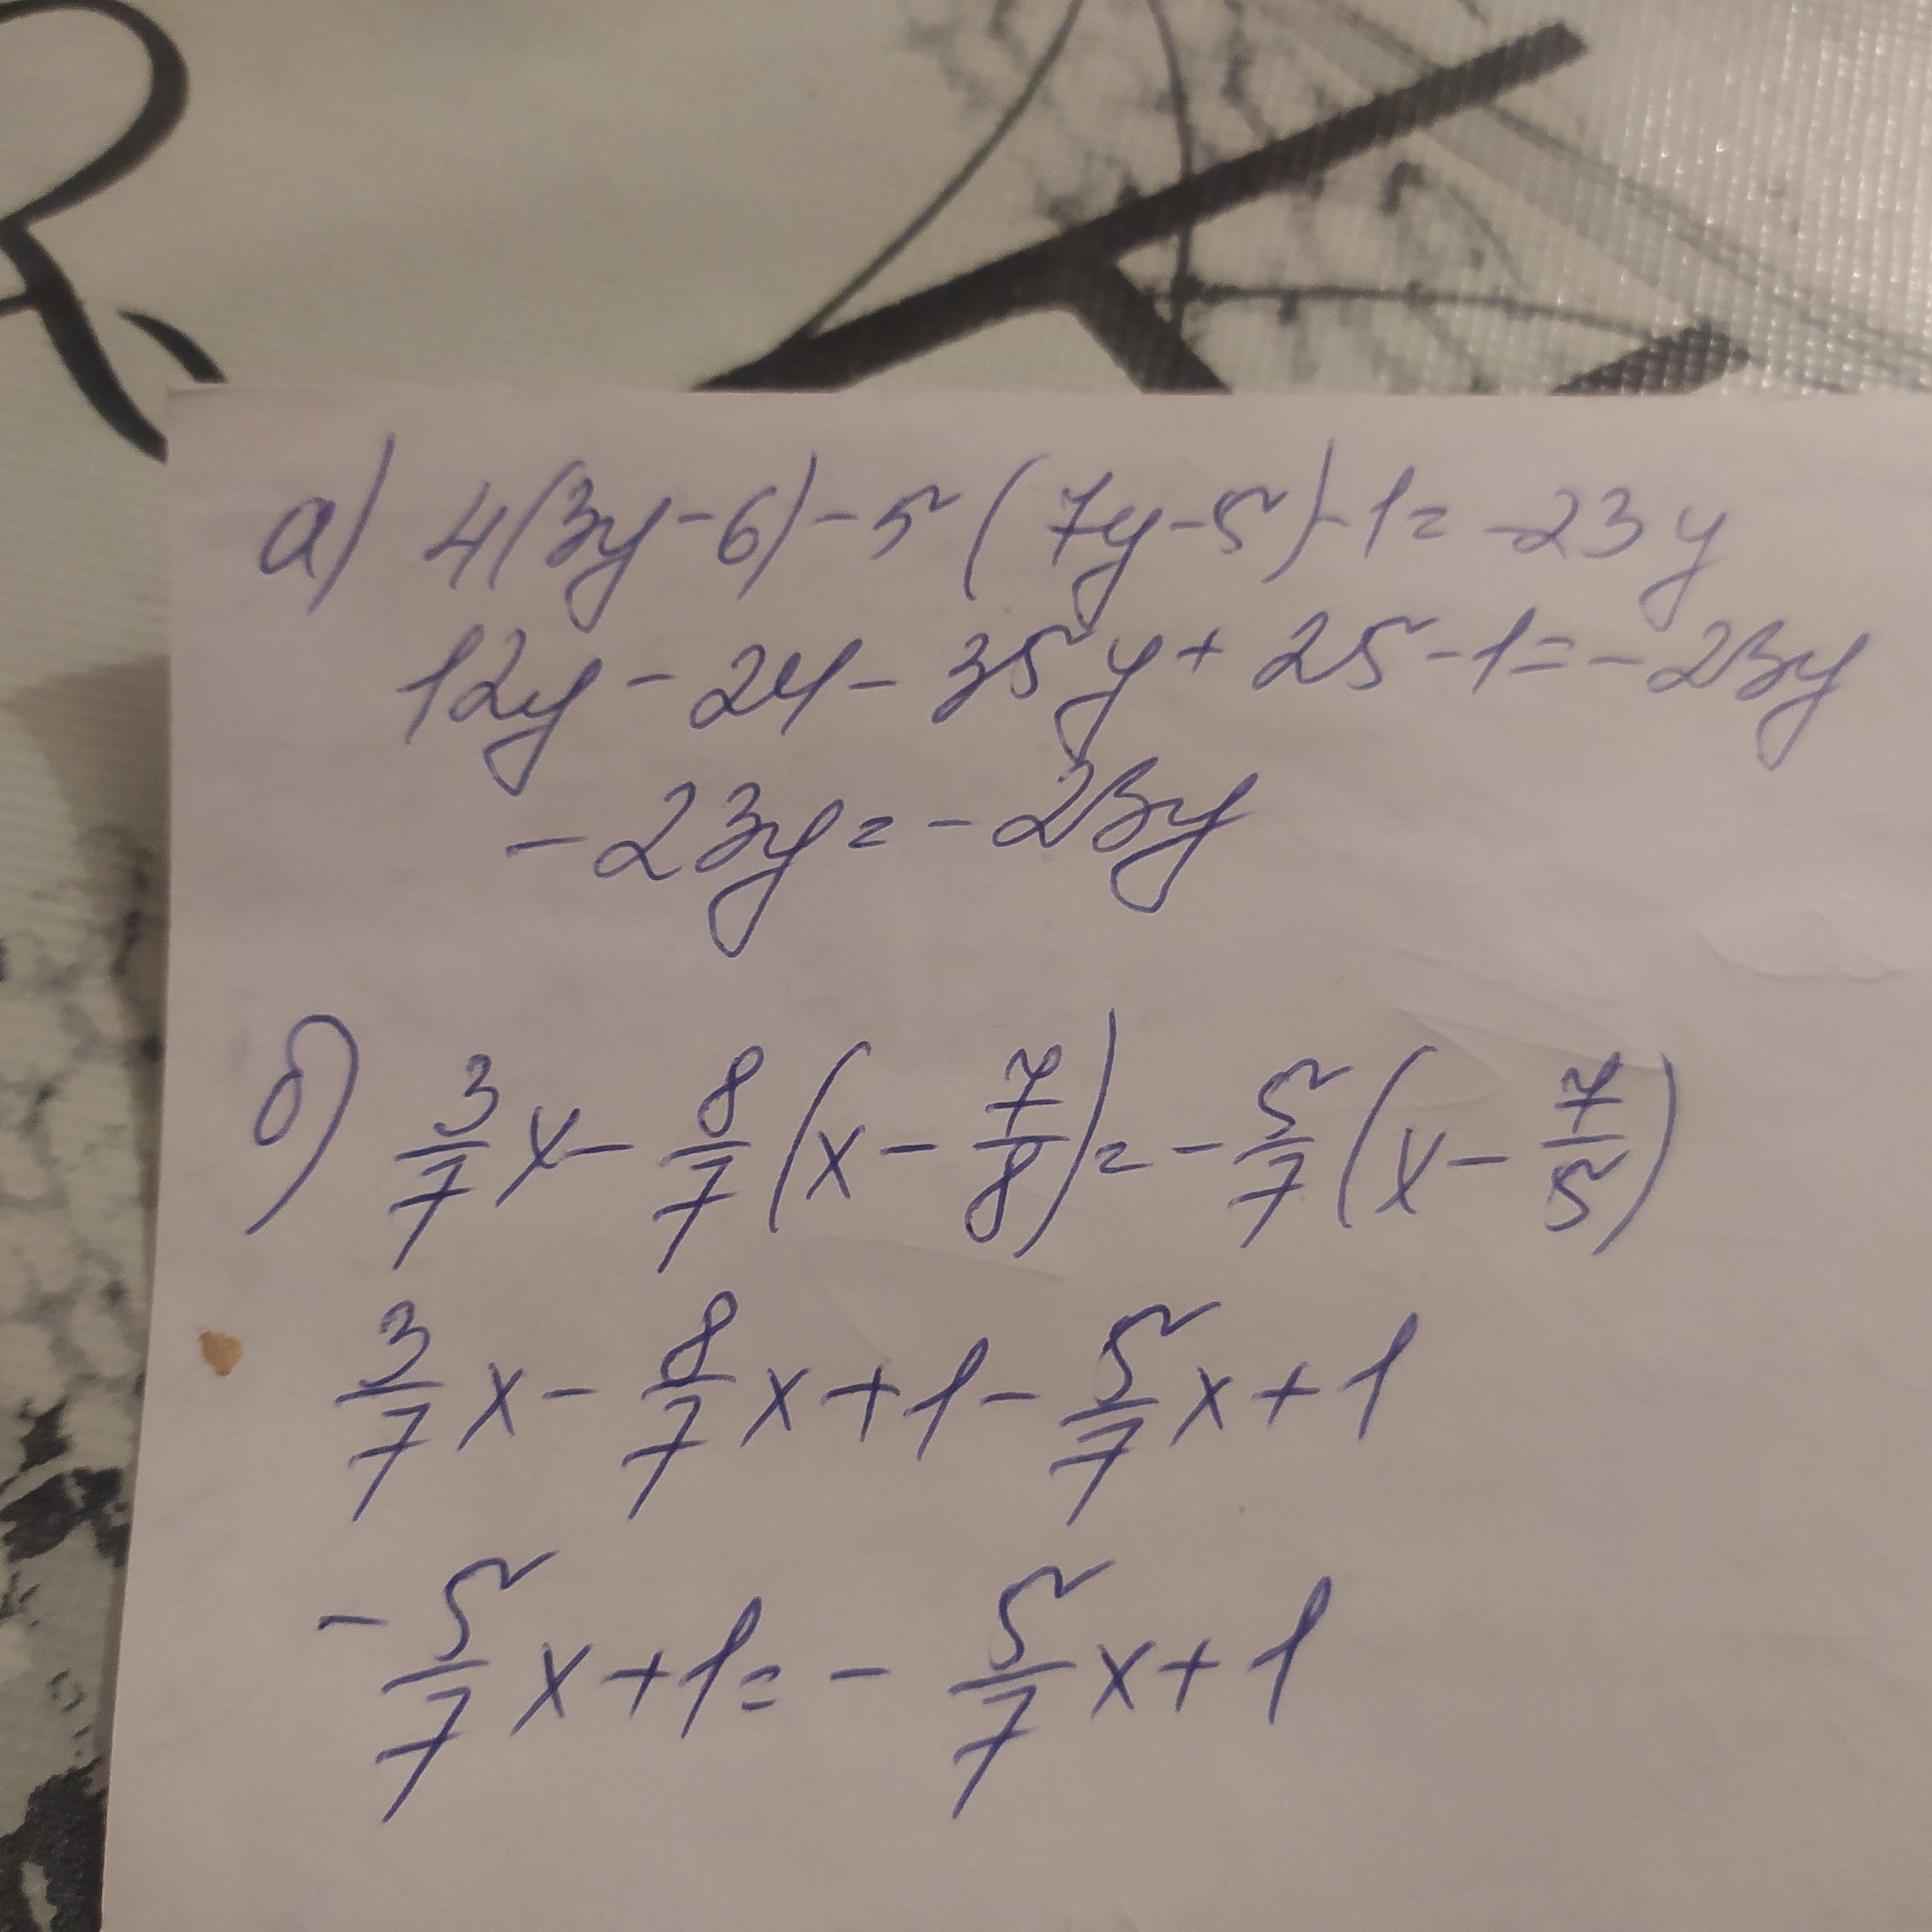 а) 4(3y-6)-5(7y-5)-1=-23y
12y-24-35y+25-1=-23y
-23y=-23y
б) 3/7 x - 8/7 (x - 7/8) = - 5/7 (x - 7/5)
3/7 x - 8/7 x + 1 - 5/7 x + 1
- 5/7 x + 1 = - 5/7 x + 1